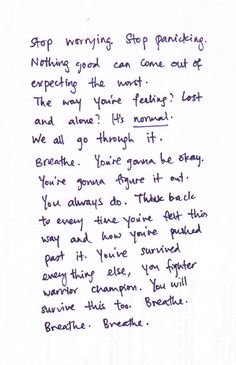 Stop worrying. Stop panicking.
Nothing good can come out of
expecting the worst.
The way you're feeling? Lost
and alone? It's normal.
We all go through it.
Breathe. You're gonna be okay.
You're gonna figure it out.
You always do. Think back
to every time you've felt this
way and how you've pushed
past it. You've survived
everything else, you fighter
warrior champion. You will
survive this too. Breathe.
Breathe. Breathe.